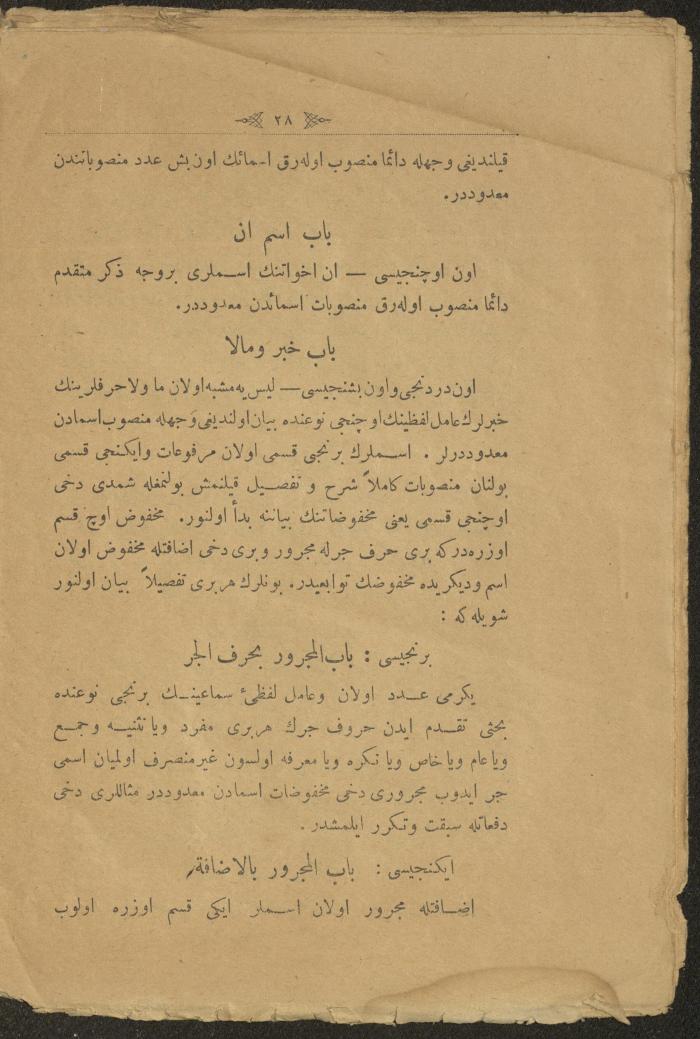 ٢٨
قیلندیغی وجهله دائما منصوب اوله‌رق اسمائك اون بش عدد منصوباتندن
معدوددر.
باب اسم ان
اون اوچنجیسی — ان اخواتنك اسملری بروجه ذكر متقدم
دائما منصوب اوله‌رق منصوبات اسمائدن معدوددر.
باب خبر ومالا
اون دردنجی واون بشنجیسی — لیس یه مشبه اولان ما ولا حرفلرینك
خبرلرك عامل لفظینك اوچنجی نوعنده بیان اولندیغی وجهله منصوب اسمادن
معدوددرلر . اسملرك برنجی قسمی اولان مرفوعات وایكنجی قسمی
بولنان منصوبات كاملاً شرح و تفصیل قیلنمش بولنمغله شمدی دخی
اوچنجی قسمی یعنی مخفوضاتنك بیاننه بدأ اولنور. مخفوض اوچ قسم
اوزره‌دركه بری حرف جرله مجرور و بری دخی اضافتله مخفوض اولان
اسم ودیكریده مخفوضك توابعیدر. بونلرك هربری تفصیلاً بیان اولنور
شویله كه :
برنجیسی : باب المجرور بحرف الجر
یكرمی عدد اولان وعامل لفظیٔ سماعینك برنجی نوعنده
بحثی تقدم ایدن حروف جرك هربری مفرد ویا تثنیه وجمع
ویا عام ویا خاص ویا نكره ویا معرفه اولسون غیر منصرف اولمیان اسمی
جر ایدوب مجروری دخی مخفوضات اسمادن معدوددر مثاللری دخی
دفعاتله سبقت وتكرر ایلمشدر .
ایكنجیسی : باب المجرور بالاضافة
اضافتله مجرور اولان اسملر ایكی قسم اوزره اولوب